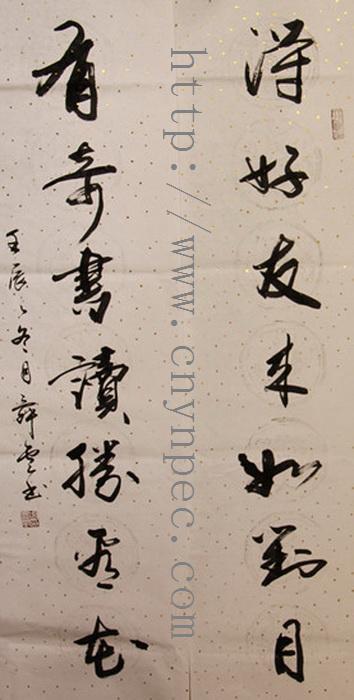 得好友来如對月
有奇書讀勝看花
壬辰冬月
http://www.cnynpec.com